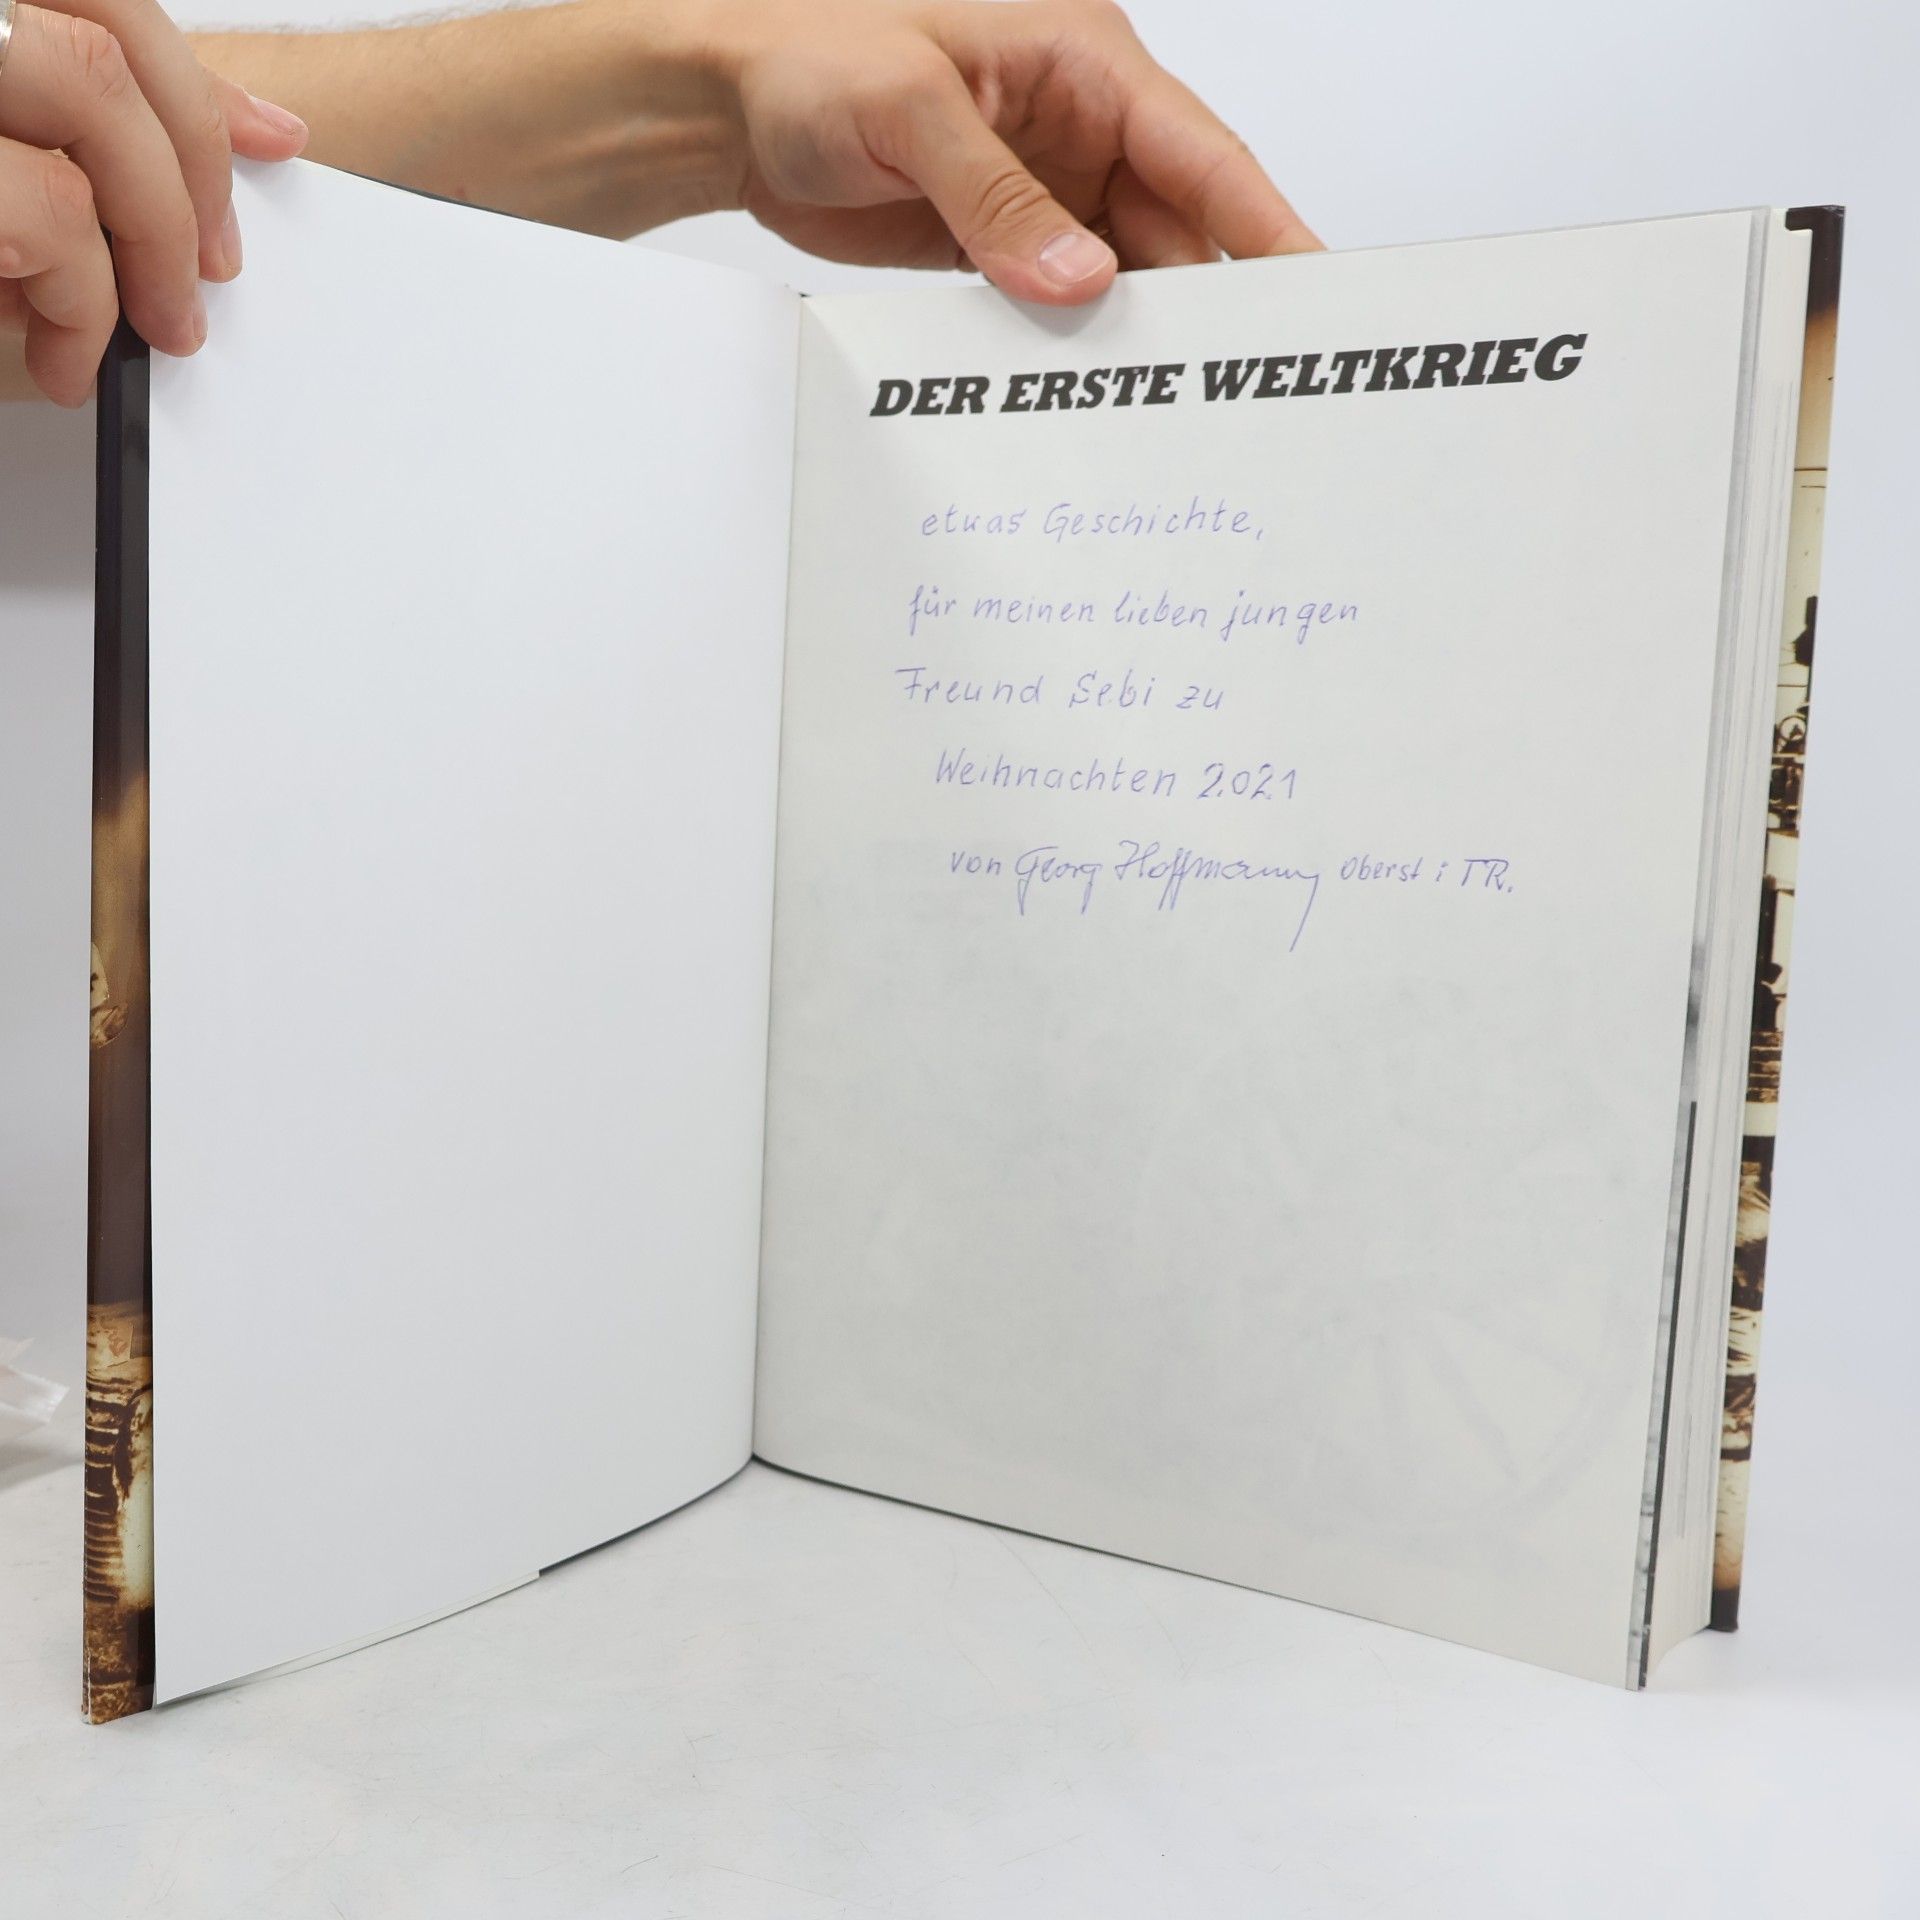 DER ERSTE WELTKRIEG
etwas Geschichte,
für meinen lieben jungen
Freund Sebi zu
Weihnachten 2021
von Georg Hoffmann Oberst i TR.